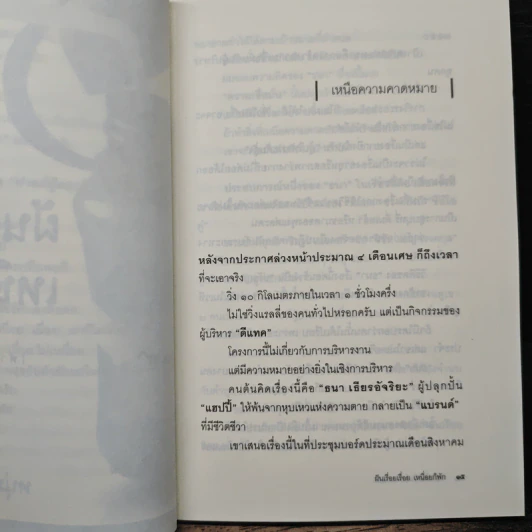 เหนือความคาดหมาย
หลังจากประกาศล่วงหน้าประมาณ ๔ เดือนเศษ ก็ถึงเวลา
ที่จะเอาจริง
วิ่ง ๑๐ กิโลเมตรภายในเวลา ๑ ชั่วโมงครึ่ง
ไม่ใช่วิ่งแรลลี่ของคนทั่วไปหรอกครับ แต่เป็นกิจกรรมของ
ผู้บริหาร "ดีแทค"
โครงการนี้ไม่เกี่ยวกับการบริหารงาน
แต่มีความหมายอย่างยิ่งในเชิงการบริหาร
คนต้นคิดเรื่องนี้คือ "ธนา เธียรอัจริยะ" ผู้ปลุกปั้น
"แฮปปี้" ให้พ้นจากหุบเหวแห่งความตาย กลายเป็น "แบรนด์"
ที่มีชีวิตชีวา
เขาเสนอเรื่องนี้ในที่ประชุมบอร์ดประมาณเดือนสิงหาคม
ฝันเรื่อยเรื่อย เหนื่อยก็พัก ๑๕